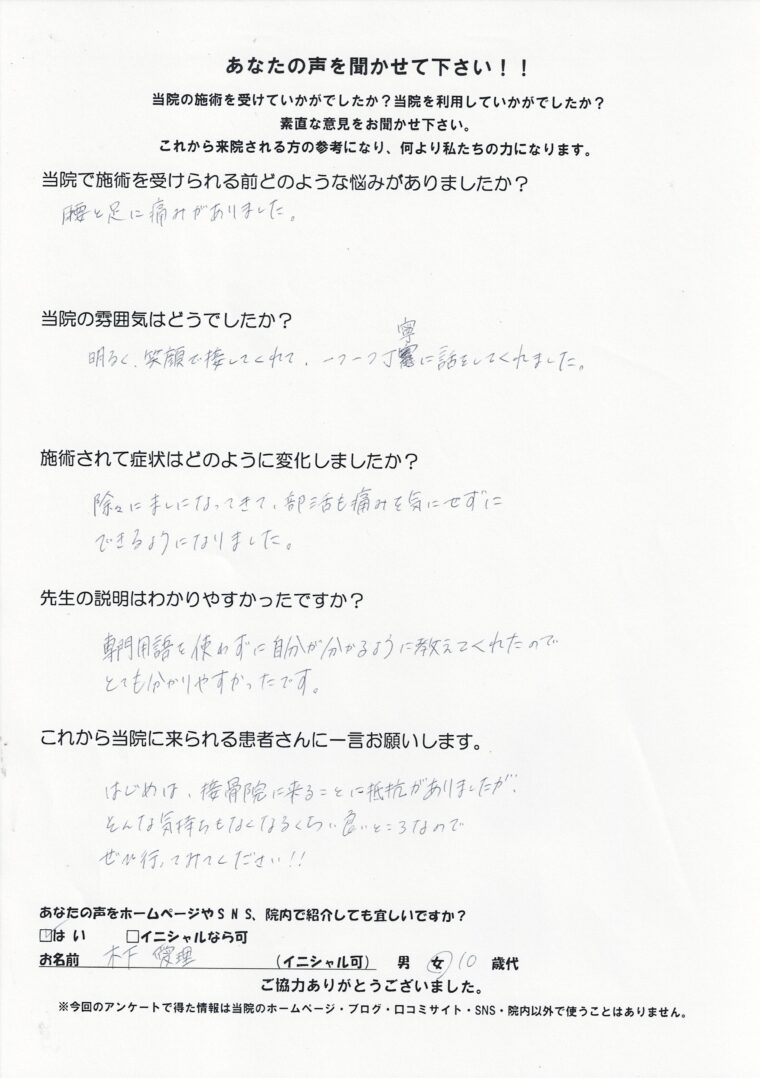 あなたの声を聞かせて下さい！！
当院の施術を受けていかがでしたか？当院を利用していかがでしたか？
素直な意見をお聞かせ下さい。
これから来院される方の参考になり、何より私たちの力になります。
当院で施術を受けられる前どのような悩みがありましたか？
腰と足に痛みがありました。
当院の雰囲気はどうでしたか？
明るく、笑顔で接してくれて、一つ一つ丁寧に話をしてくれました。
施術されて症状はどのように変化しましたか？
除々にましになってきて、部活も痛みを気にせずに
できるようになりました。
先生の説明はわかりやすかったですか？
専門用語を使わずに自分が分かるように教えてくれたので
とても分かりやすかったです。
これから当院に来られる患者さんに一言お願いします。
はじめは、接骨院に来ることに抵抗がありましたが、
そんな気持ちもなくなるくらい良いところなので
ぜひ行ってみてください!!
あなたの声をホームページやSNS、院内で紹介しても宜しいですか？
☑はい □イニシャルなら可
お名前 木下 愛理 （イニシャル可） 男 女 10 歳代
ご協力ありがとうございました。
※今回のアンケートで得た情報は当院のホームページ・ブログ・口コミサイト・SNS・院内以外で使うことはありません。